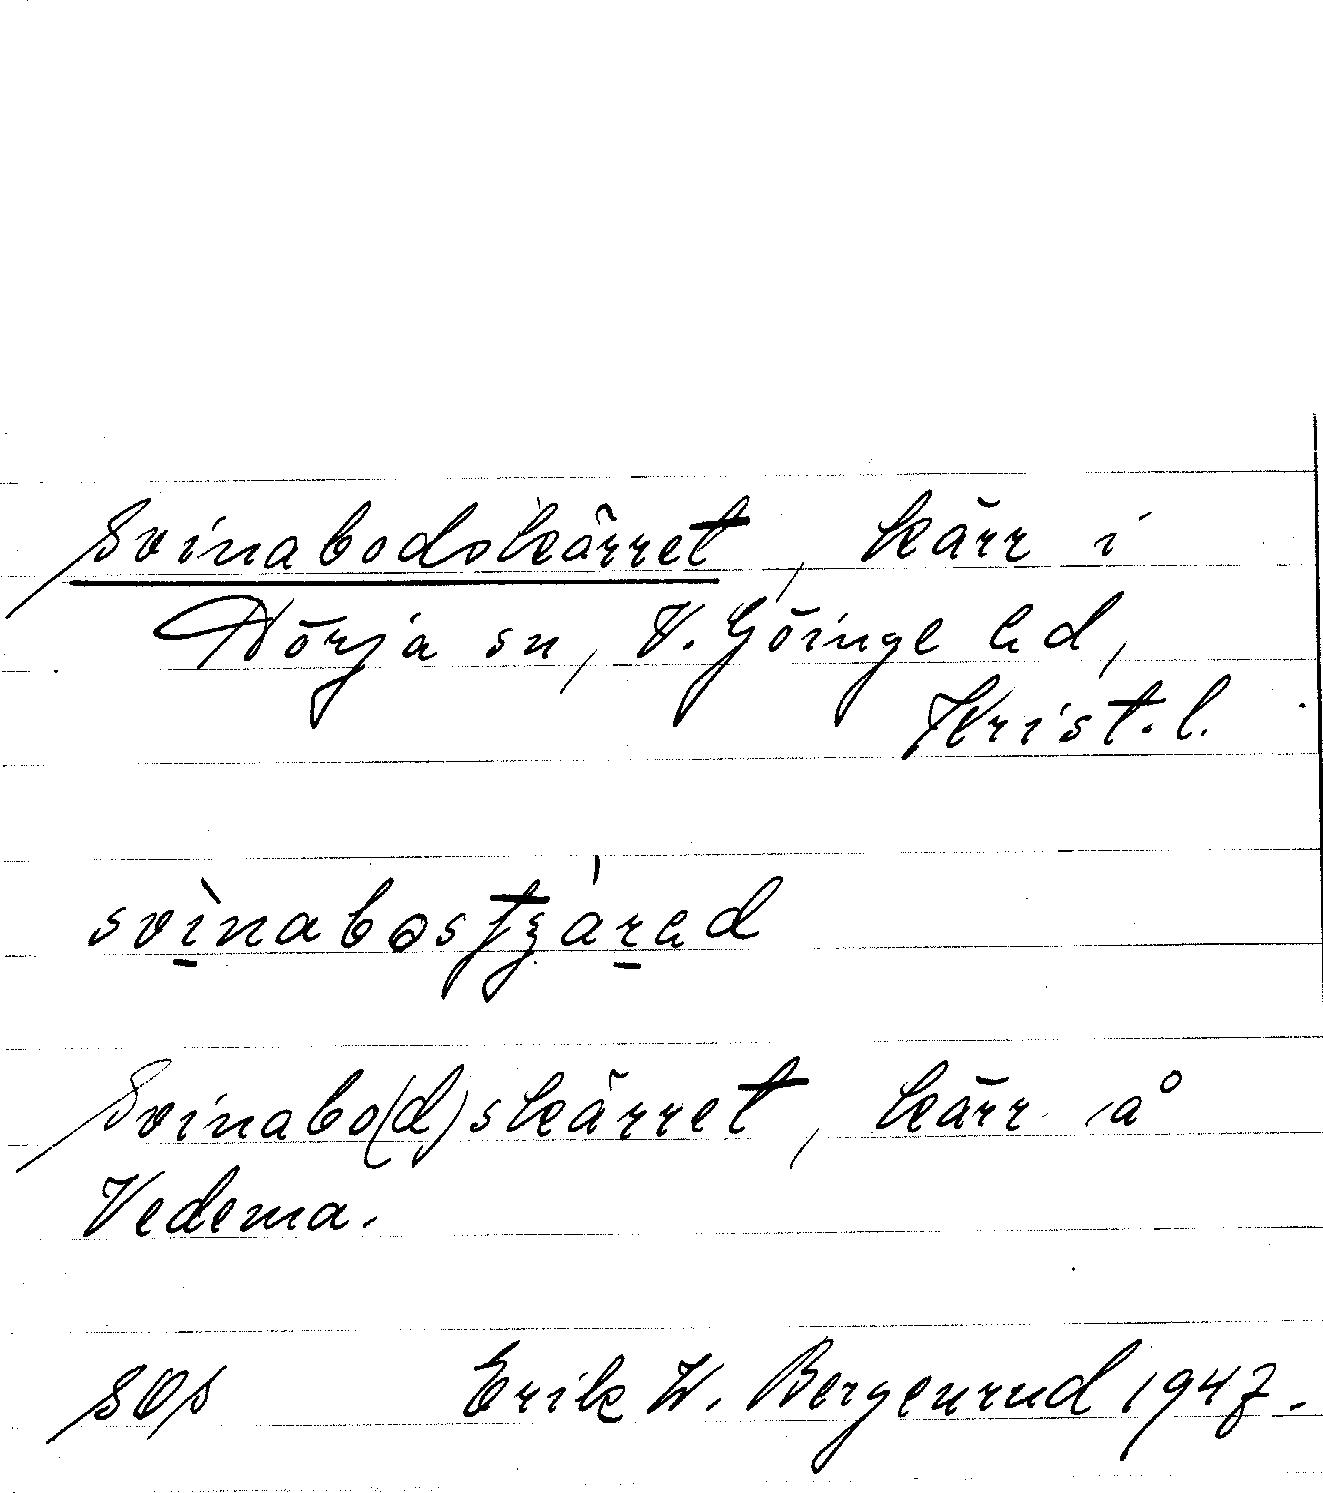 Svinabodskärret, kärr i
Nörja sn, V. Göinge hd,
Krist. l.
svìnabostʒàrad
Svinabo(d)skärret, kärr å
Vedema.
SOS Erik W. Bergenrud 1947.